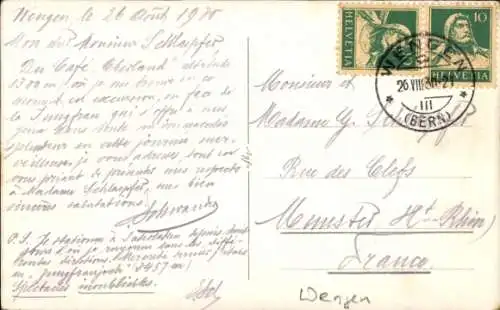 Wengen le 26 Août 1930
Mon cher Monsieur Schlaepfer,
Du Café Oberland altitude
1300 m, où je me trouve en ce
moment, en excursion, en face de
la Jungfrau qui s'offre à mes
yeux dans toute
splendeur en cette journée mer-
veilleuse, je vous adresse, tout en
vous priant de présenter mes respects
à Madame Schlaepfer, mes bien
sincères salutations.
Schwander
P.S. Je stationne à Interlaken depuis
jours d'où je rayonne dans les diffé-
rentes directions.
en "Jungfraujoch" (3457 m)
Spectacles inoubliables.
HELVETIA
HELVETIA 10
WENGEN
26.VIII.30
III
(BERN)
Monsieur et
Madame G. Schlaepfer
Rue des Clefs
Munster Ht. Rhin
France
Wengen